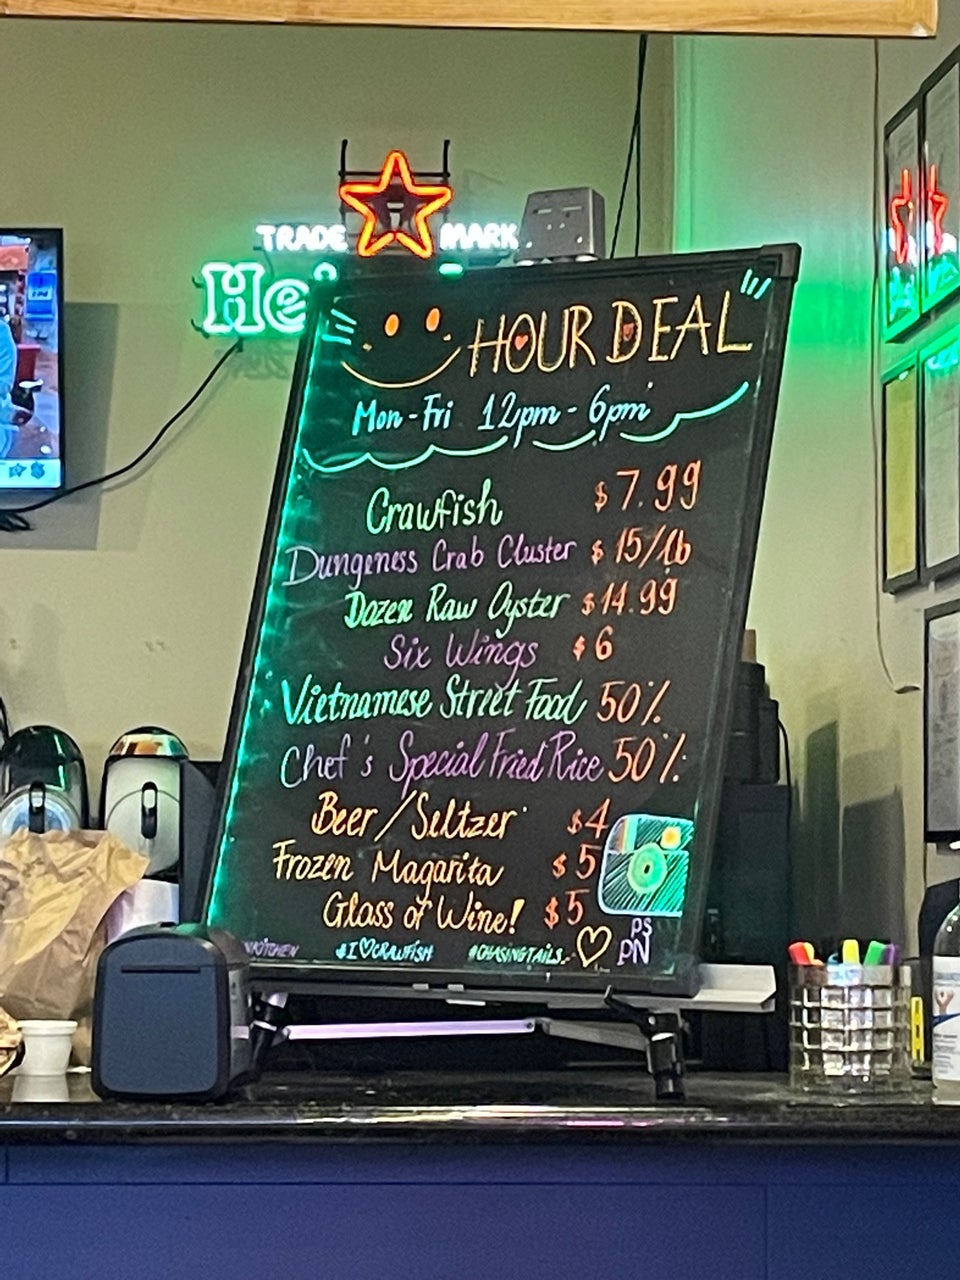 TRADE MARK
He
HOUR DEAL
Mon-Fri 12pm - 6pm
Crawfish $7.99
Dungeness Crab Cluster $15/lb
Dozen Raw Oyster $14.99
Six Wings $6
Vietnamese Street Food 50%
Chef's Special Fried Rice 50%
Beer/Seltzer $4
Frozen Magarita $5
Glass of Wine! $5
#I♡CRAWFISH #CHASINGTAILS
PS
PN